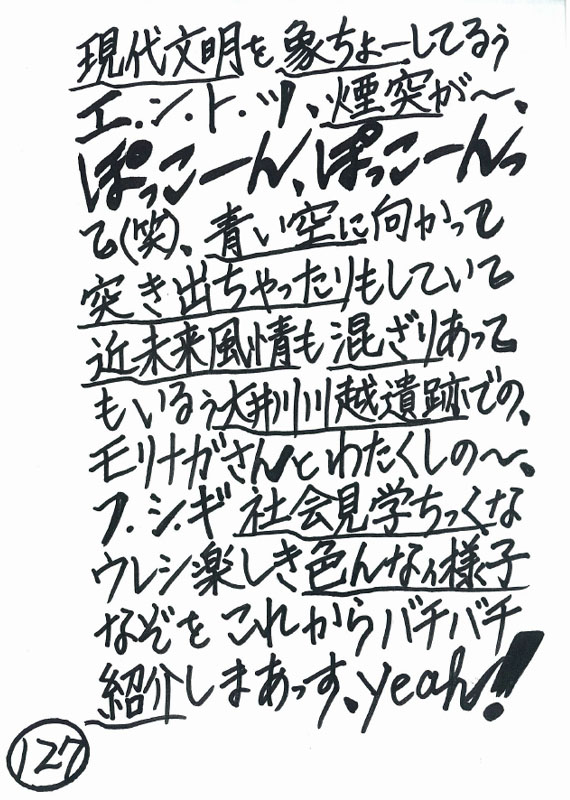 現代文明を象ちょーしてるぅ
エ.ン.ト.ツ、煙突が〜、
ぽっこーん、ぽっこーんっ
て(笑)、青い空に向かって
突き出ちゃったりもしていて
近未来風情も混ざりあって
もいるぅ大井川川越遺跡での、
モリナガさんとわたくしの〜、
フ.シ.ギ社会見学ちっくな
ウレシ楽しき色んなィ様子
なぞをこれからバチバチ
紹介しまあっす、yeah!!
127